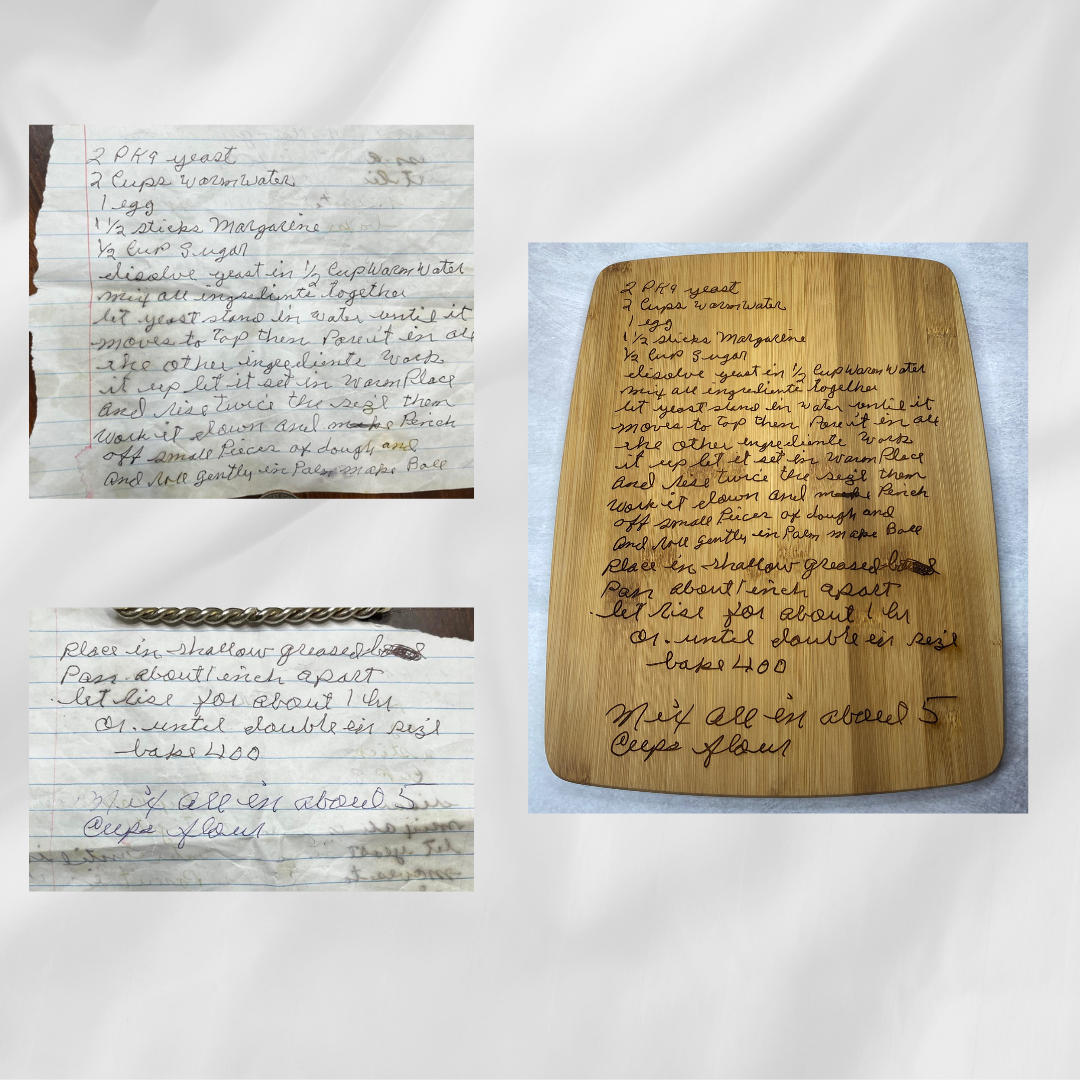 2 PKg yeast
2 Cups warm water
1 egg
1 1/2 sticks Margarine
1/2 Cup Sugar
disolve yeast in 1/2 Cup Warm Water
mix all ingrediente together
let yeast stand in water until it
moves to top then Pore it in all
the other ingrediente Work
it up let it set in warm Place
And rise twice the size then
Work it down and make Pench
off small Pieces of dough and
And roll gently in Palm make Ball
Place in shallow greased
Pan about 1 inch apart
let rise for about 1 hr
Or. until double in size
bake 400
Mix all in about 5
Cups flour
2 PKg yeast
2 Cups warm water
1 egg
1 1/2 sticks Margarine
1/2 Cup Sugar
disolve yeast in 1/2 Cup Warm Water
mix all ingrediente together
let yeast stand in water until it
moves to top then Pore it in all
the other ingrediente Work
it up let it set in warm Place
And rise twice the size then
Work it down and make Pench
off small Pieces of dough and
And roll gently in Palm make Ball
Place in shallow greased
Pan about 1 inch apart
let rise for about 1 hr
Or. until double in size
bake 400
Mix all in about 5
Cups flour